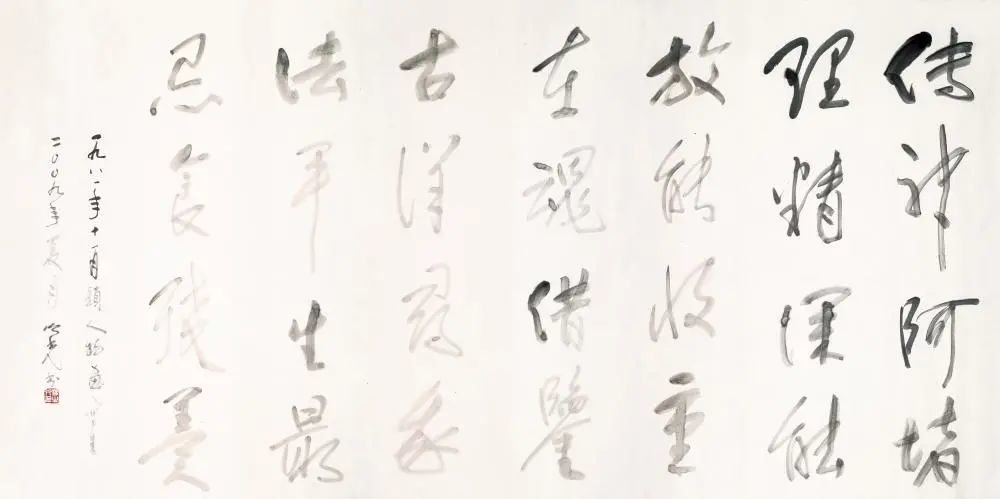 傳神阿堵
理精深能
放能收重
在魂借鑒
古洋尋我
法平生最
忌食殘羹
一九八一年十一月題人物畫
二〇〇九年夏